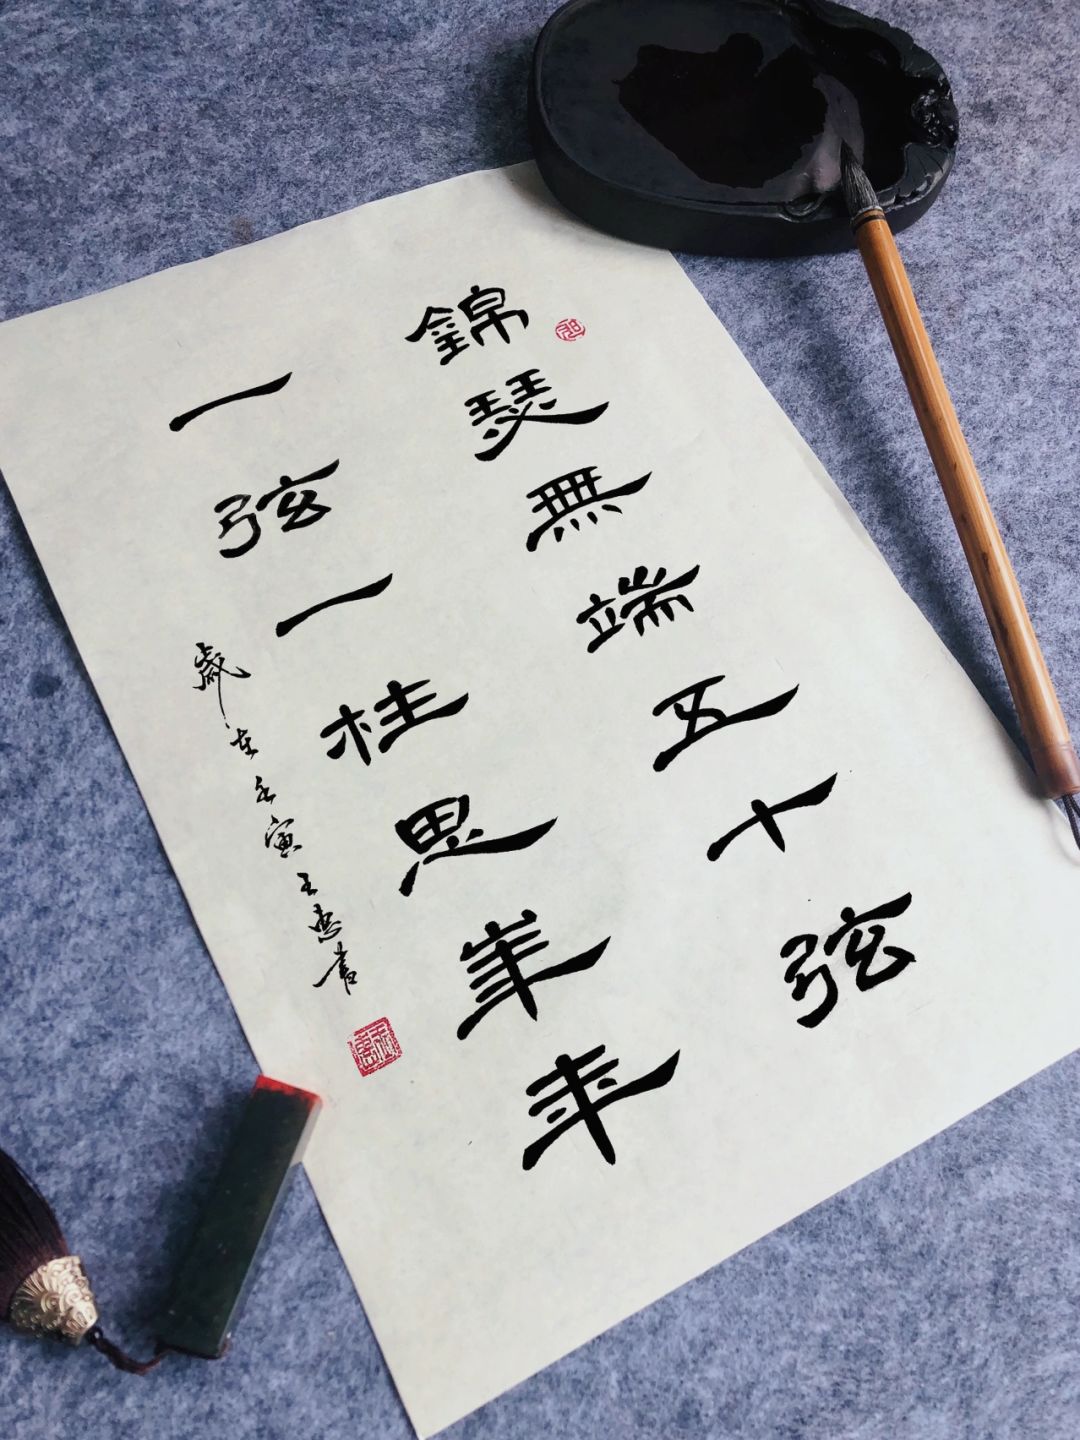 錦瑟無端五十弦
一弦一柱思華年
歲在壬寅王忠書